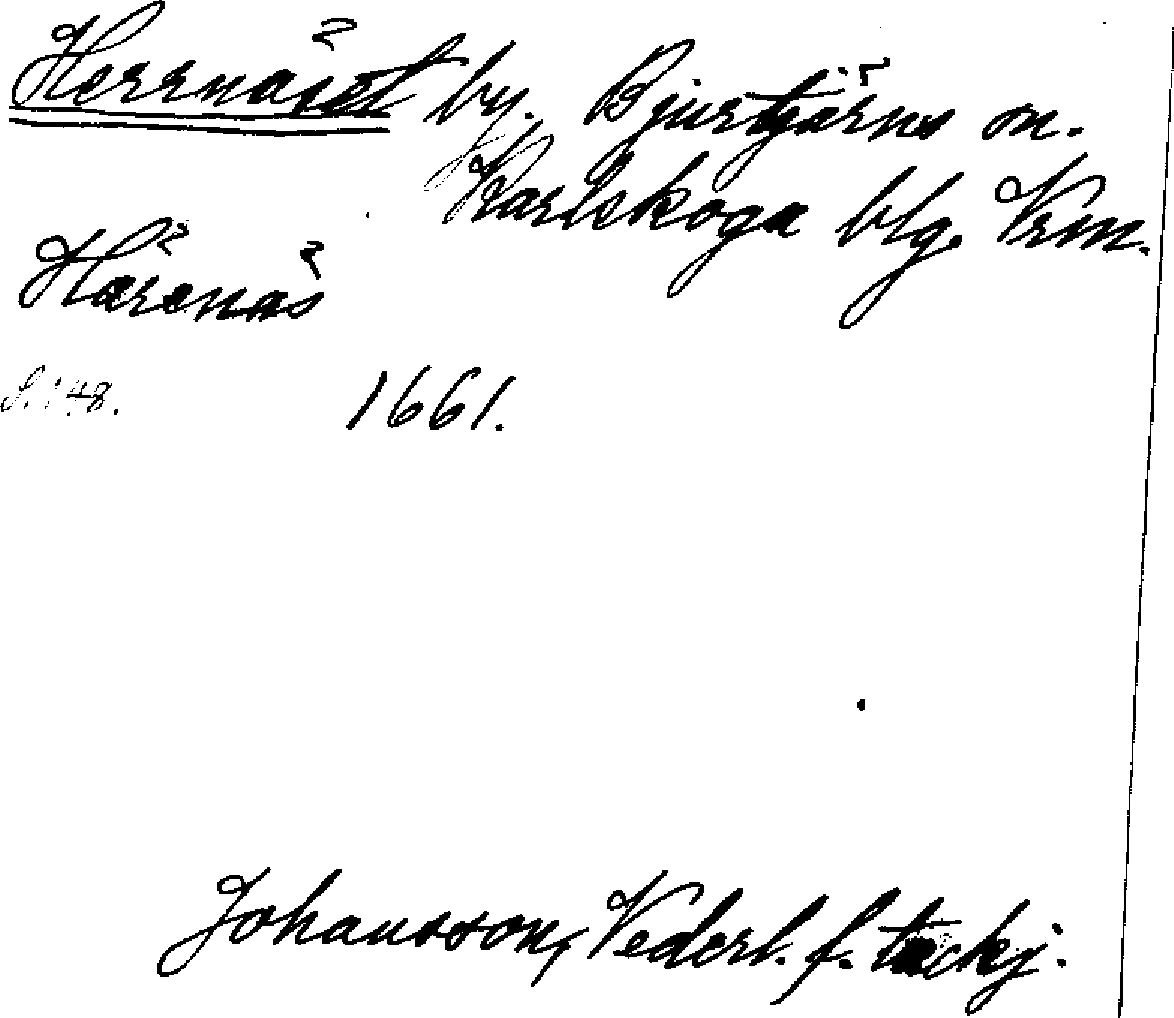 Herrnäset by. Bjurtjärns sn.
Karlskoga blg. Vrm.
Härenäs
S. 148. 1661.
Johansson, Vederl. f. tackj.